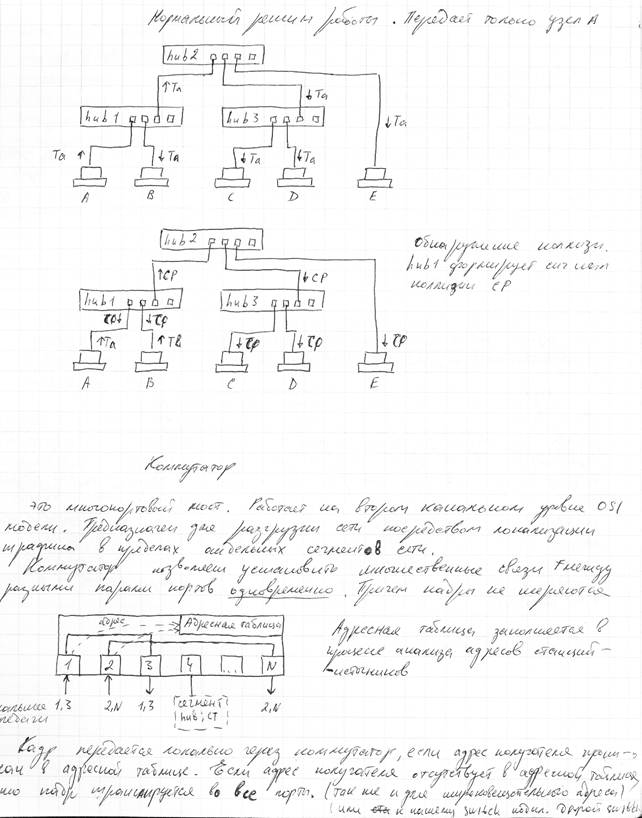 Нормальный режим работы. Передает только узел A
hub2
↑Ta
↓Ta
hub1
hub3
↓Ta
Ta ↑
↓Ta
↓Ta
↓Ta
A
B
C
D
E
hub2
Обнаружение коллизи.
hub1 формирует сигнал
коллизии CP
↑CP
↓CP
hub1
hub3
CP↓
↓CP
↑Ta
↑TB
↓CP
↓CP
↓CP
A
B
C
D
E
Коммутатор
это многопортовый мост. Работает на втором канальном уровне OSI
модели. Предназначен для разгрузки сети посредством локализации
трафика в пределах отдельных сегментов сети.
Коммутатор позволяет установить множественные связи между
разными парами портов одновременно. Причем кадры не теряются
адрес
Адресная таблица
Адресная таблица заполняется в
процессе анализа адресов станций-
-источников
1
2
3
4
...
N
1,3
2,N
1,3
сегмент
hub; СТ
2,N
передачи
Кадр передается локально через коммутатор, если адрес получателя
в адресной таблице. Если адрес получателя отсутствует в адресной таблице
то кадр транслируется во все порты. (так же и для широковещательного адреса)
(или к нашему switch другой switch